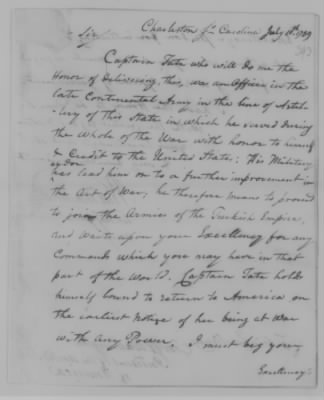 Charleston So Carolina July 18th 1789
Sir
Captain Tate who will do me the
Honor of delivering this, was an Officer in the
late Continental Army in the line of Artil-
lery of this State in which he served during
the Whole of the War with honor to himself
& Credit to the United States; His Military
ardor
has lead him on to a further improvement in
the Art of War, he therefore means to proceed
to join the Armies of the Turkish Empire,
and waits upon your Excellency for any
Commands which you may have in that
part of the World. Captain Tate holds
himself bound to return to America on
the earliest Notice of her being at War
with any Power. I must beg your
Excellency